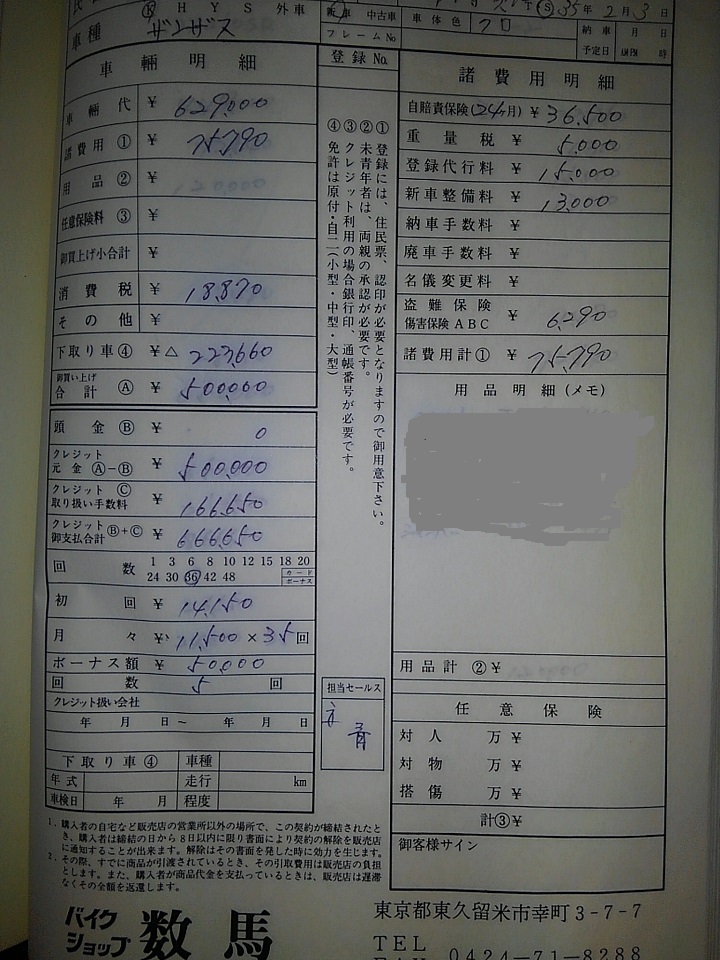 K H Y S 外車
新車 中古車
車体色 クロ
S 35年2月3日
車種 ザンザス
フレームNo
納車予定日 月 日 AM・PM 時
車輛明細
車輛代 ¥ 629,000
諸費用① ¥ 75,790
用品② ¥
任意保険料③ ¥
御買上げ小合計 ¥
消費税 ¥ 18,870
その他 ¥
下取り車④ ¥△ 223,660
御買い上げ合計Ⓐ ¥ 500,000
頭金Ⓑ ¥ 0
クレジット元金Ⓐ−Ⓑ ¥ 500,000
クレジットⒸ取り扱い手数料 ¥ 166,650
クレジットⒷ+Ⓒ御支払合計 ¥ 666,650
回数 1 3 6 8 10 12 15 18 20
24 30 36 42 48 カード ボーナス
初回 ¥ 14,150
月々 ¥ 11,500 × 35回
ボーナス額 ¥ 50,000
回数 5 回
クレジット扱い会社
年 月 日〜 年 月 日
下取り車④ 車種
年式 走行 km
車検日 年 月 程度
登録No.
①登録には、住民票、認印が必要となりますので御用意下さい。
②未青年者は、両親の承認が必要です。
③クレジット利用の場合銀行印、通帳番号が必要です。
④免許は原付・自二(小型・中型・大型)
担当セールス
諸費用明細
自賠責保険(24ヶ月) ¥ 36,500
重量税 ¥ 5,000
登録代行料 ¥ 15,000
新車整備料 ¥ 13,000
納車手数料 ¥
廃車手数料 ¥
名儀変更料 ¥
盗難保険
傷害保険ABC ¥ 6,290
諸費用計① ¥ 75,790
用品明細(メモ)
用品計②¥
任意保険
対人 万¥
対物 万¥
搭傷 万¥
計③¥
御客様サイン
1. 購入者の自宅など販売店の営業所以外の場所で、この契約が締結されたとき、購入者は締結の日から8日以内に限り書面により契約の解除を販売店に通知することが出来ます。解除はその書面を発した時に効力を生じます。
2. その際、すでに商品が引渡されているとき、その引取費用は販売店の負担とします。また、購入者が商品代金を支払っているときは、販売店は遅滞なくその全額を返還します。
バイクショップ 数馬
東京都東久留米市幸町3-7-7
TEL
FAX 0424-71-8288